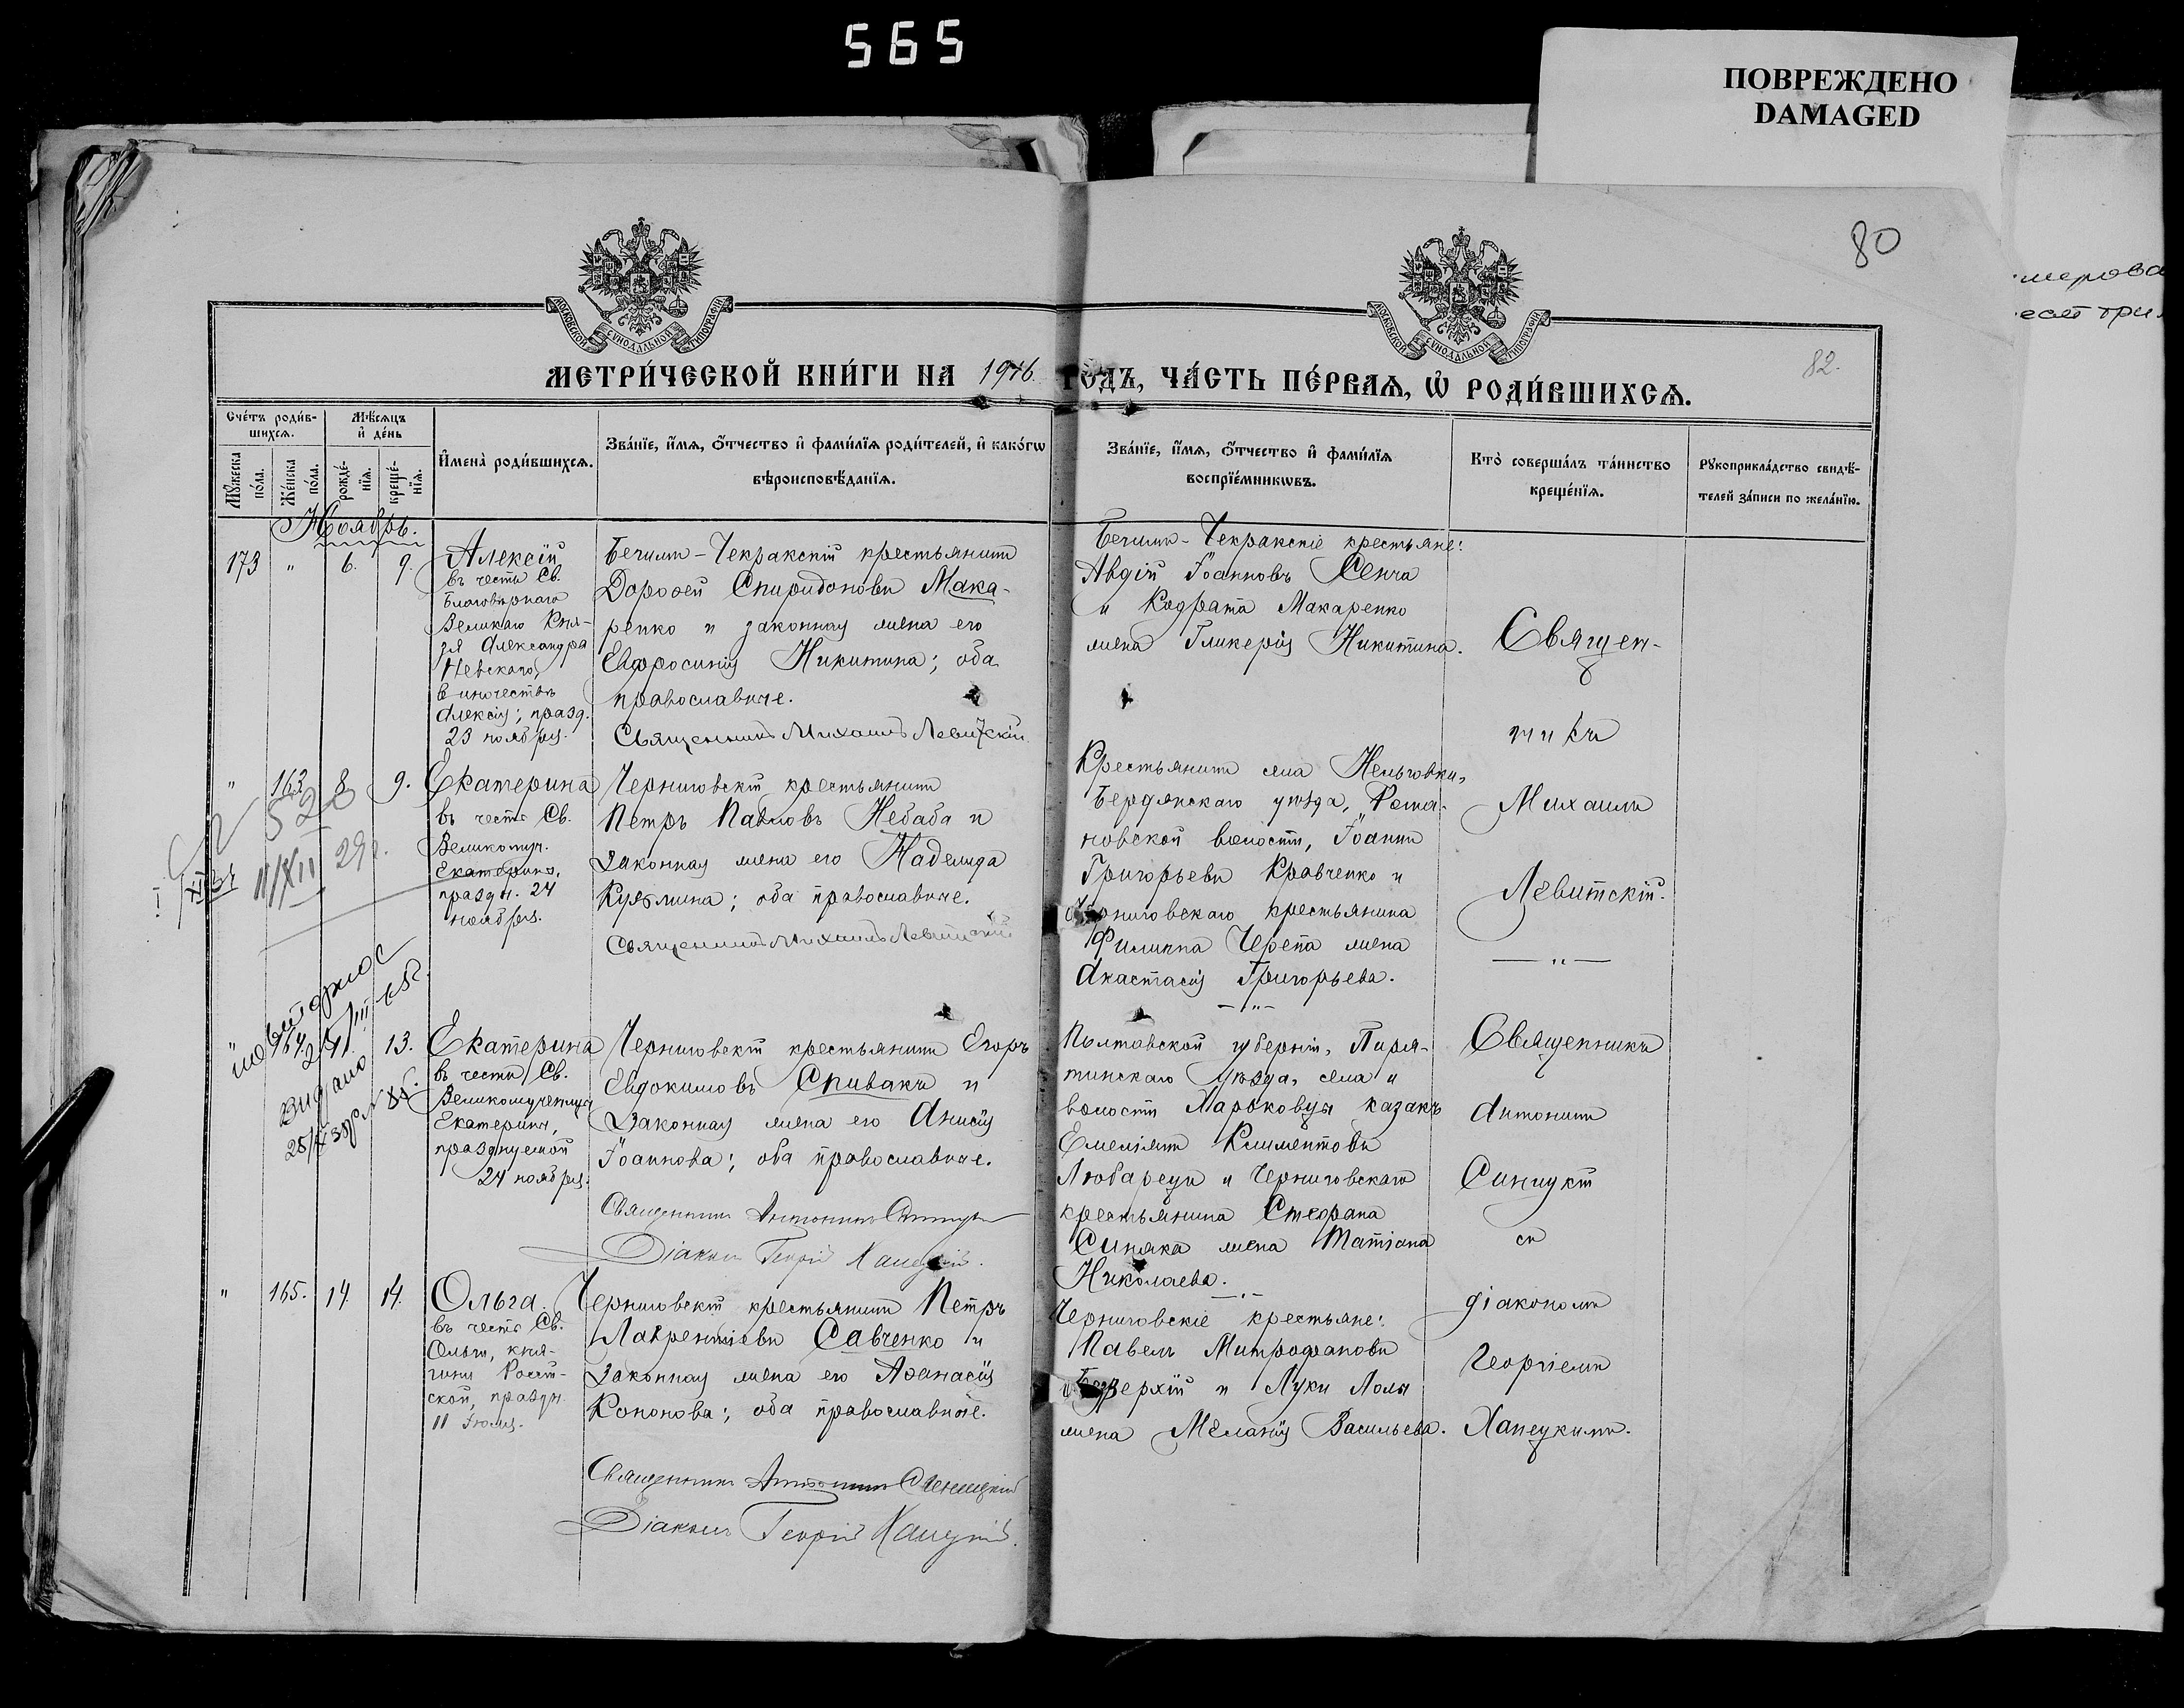 565
ПОВРЕЖДЕНО
DAMAGED
80
82.
МОСКОВСКОЙ СѴНОДАЛЬНОЙ ТИПОГРАФІИ
МОСКОВСКОЙ СѴНОДАЛЬНОЙ ТИПОГРАФІИ
МЕТРИ́ЧЕСКОЙ КНИ́ГИ НА 1916 ГОДЪ, ЧА́СТЬ ПЕ́РВАЯ, Ѡ РОДИ́ВШИХСЯ.
Сче́тъ роди́в-
шихся.
Мѣ́сяцъ
и де́нь
Мꙋ́жеска
по́ла.
Же́нска
по́ла.
рожде́-
нїя.
креще́-
нїя.
И҆мена̀ роди́вшихся.
Зва́нїе, и҆́мя, ѻ҆́тчество и҆ фами́лїя роди́телей, и҆ како́гѡ
вѣроисповѣ́данїя.
Зва́нїе, и҆́мя, ѻ҆́тчество и҆ фами́лїя
воспрїе́мникѡвъ.
Кто̀ соверша́лъ та́инство
креще́нїя.
Рꙋкоприкла́дство свидѣ́-
телей за́писи по жела́нїю.
Ноябрь.
173 " 6. 9.
Алексій
въ честь Св.
Благовѣрнаго
Великаго Кня-
зя Александра
Невскаго,
в иночествѣ
Алексія; празд.
23 ноября.
Бегимъ-Чекракскій крестьянинъ
Дороѳей Спиридоновъ Мака-
ренко и законная жена его
Евфросинія Никитина; оба
православные.
Священникъ Михаилъ Левитскій
Бегимъ-Чекракскіе крестьяне:
Авдій Іоанновъ Сенча
и Кодрата Макаренко
жена Гликерія Никитина.
Священ-
никъ
Михаилъ
Левитскій.
— " —
" 163 8 9.
Екатерина
въ честь Св.
Великомуч.
Екатерины,
праздн. 24
ноября.
Черниговскій крестьянинъ
Петръ Павловъ Небаба и
законная жена его Надежда
Кузмина; оба православные.
Священникъ Михаилъ Левитскій
Крестьянинъ села Нельговки,
Бердянскаго уѣзда, Рома-
новской волости, Іоаннъ
Григорьевъ Кравченко и
Черниговскаго крестьянина
Филиппа Черепа жена
Анастасія Григорьева.
— " —
520
11/XII 29г.
повторное
Видано
" 164. 11. 13.
Екатерина
въ честь Св.
Великомученицы
Екатерины,
празднуемой
24 ноября.
Черниговскій крестьянинъ Егоръ
Евдокимовъ Спивакъ и
законная жена его Анисія
Іоаннова; оба православные.
Священникъ Антонинъ
Діаконъ Георгій Ханецкій.
Полтавской губерніи, Пиря-
тинскаго уѣзда, села и
волости Марковцы казакъ
Емеліянъ Климентовъ
Любарецъ и Черниговскаго
крестьянина Стефана
Синяка жена Татіана
Николаева.
— " —
Священникъ
Антонинъ
Синицкій
съ
діакономъ
Георгіемъ
Ханецкимъ.
" 165. 14 14.
Ольга.
въ честь Св.
Ольги, кня-
гини Россій-
ской, праздн.
11 Іюля.
Черниговскій крестьянинъ Петръ
Лаврентіевъ Савченко и
законная жена его Аѳанасія
Кононова; оба православные.
Священникъ Антонинъ Синицкій
Діаконъ Георгій Ханецкій.
Черниговскіе крестьяне:
Павелъ Митрофановъ
и Луки Лолы
жена Меланія Васильева.